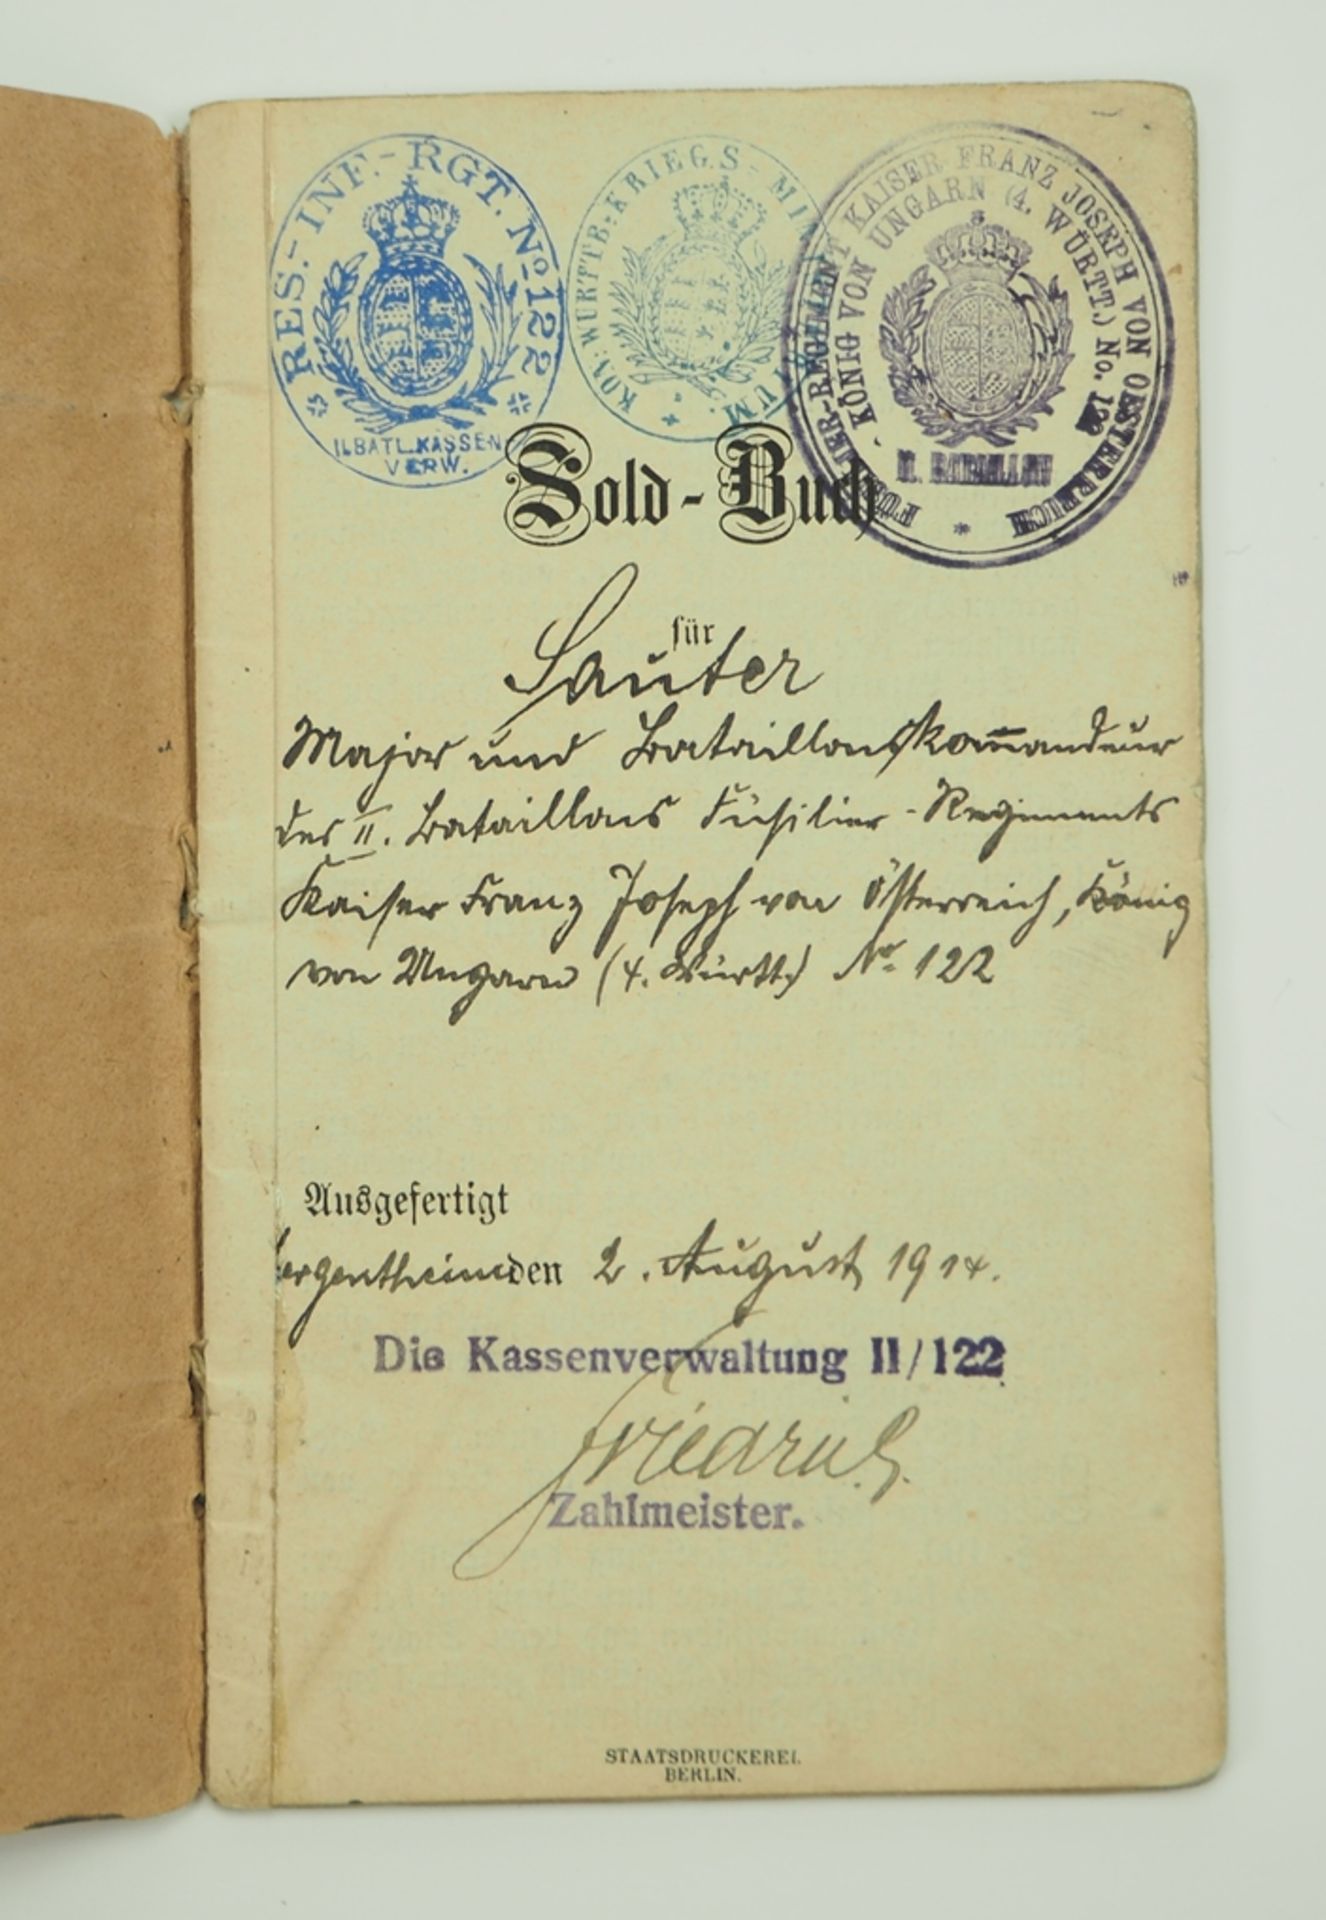 RES.-INF.-RGT. No 122
II. BATL. KASSEN
VERW.
KÖN: WÜRTTB: KRIEGS-MINISTERIUM.
FÜSILIER-REGIMENT KAISER FRANZ JOSEPH VON OESTERREICH
KÖNIG VON UNGARN (4. WÜRTT.) No. 122
II. BATAILLON
Sold-Buch
für
Sauter
Major und Bataillonskom̅andeur
des II. Bataillons Füsilier-Regiments
Kaiser Franz Joseph von Österreich, König
von Ungarn (4. Württ.) No. 122
Ausgefertigt
Mergentheim den 2. August 1914.
Die Kassenverwaltung II/122
Friedrich.
Zahlmeister.
STAATSDRUCKEREI.
BERLIN.